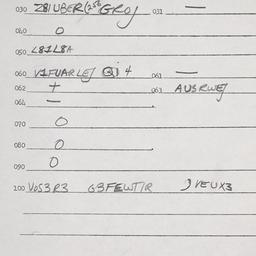 030 Z8IUBER(258GROJ 031 —
040 O
050 L81L8A
060 V1FUARLEJ QI4 061 —
062 + 063 AUSRWEJ
064 —
070 O
080 O
090 O
100 VOS3R3 G3FEWTIR JVEUX3